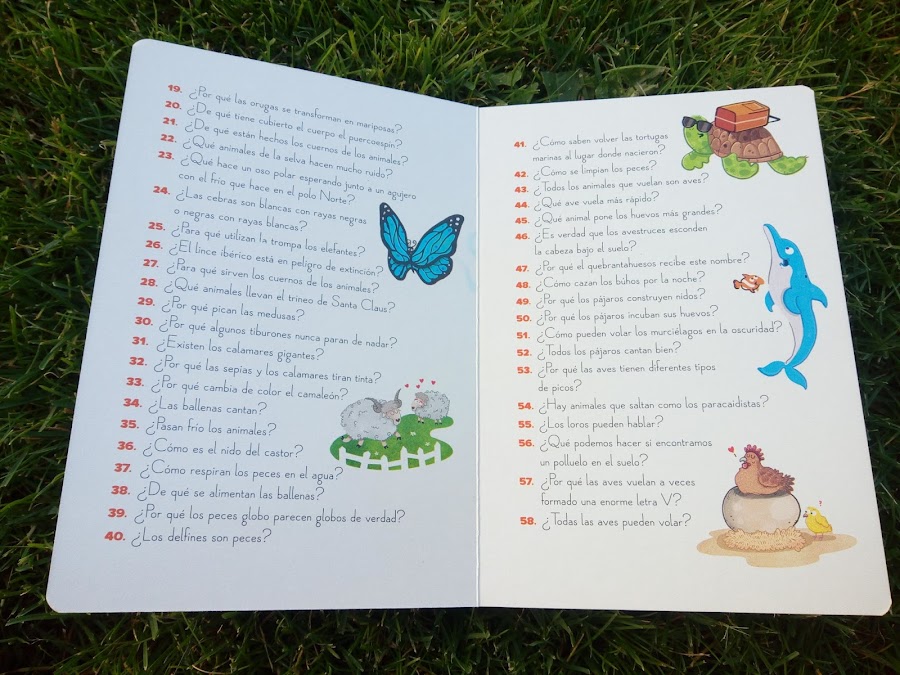 19. ¿Por qué las orugas se transforman en mariposas?
20. ¿De qué tiene cubierto el cuerpo el puercoespín?
21. ¿De qué están hechos los cuernos de los animales?
22. ¿Qué animales de la selva hacen mucho ruido?
23. ¿Qué hace un oso polar esperando junto a un agujero
con el frío que hace en el polo Norte?
24. ¿Las cebras son blancas con rayas negras
o negras con rayas blancas?
25. ¿Para qué utilizan la trompa los elefantes?
26. ¿El lince ibérico está en peligro de extinción?
27. ¿Para qué sirven los cuernos de los animales?
28. ¿Qué animales llevan el trineo de Santa Claus?
29. ¿Por qué pican las medusas?
30. ¿Por qué algunos tiburones nunca paran de nadar?
31. ¿Existen los calamares gigantes?
32. ¿Por qué las sepias y los calamares tiran tinta?
33. ¿Por qué cambia de color el camaleón?
34. ¿Las ballenas cantan?
35. ¿Pasan frío los animales?
36. ¿Cómo es el nido del castor?
37. ¿Cómo respiran los peces en el agua?
38. ¿De qué se alimentan las ballenas?
39. ¿Por qué los peces globo parecen globos de verdad?
40. ¿Los delfines son peces?
41. ¿Cómo saben volver las tortugas
marinas al lugar donde nacieron?
42. ¿Cómo se limpian los peces?
43. ¿Todos los animales que vuelan son aves?
44. ¿Qué ave vuela más rápido?
45. ¿Qué animal pone los huevos más grandes?
46. ¿Es verdad que los avestruces esconden
la cabeza bajo el suelo?
47. ¿Por qué el quebrantahuesos recibe este nombre?
48. ¿Cómo cazan los búhos por la noche?
49. ¿Por qué los pájaros construyen nidos?
50. ¿Por qué los pájaros incuban sus huevos?
51. ¿Cómo pueden volar los murciélagos en la oscuridad?
52. ¿Todos los pájaros cantan bien?
53. ¿Por qué las aves tienen diferentes tipos
de picos?
54. ¿Hay animales que saltan como los paracaidistas?
55. ¿Los loros pueden hablar?
56. ¿Qué podemos hacer si encontramos
un polluelo en el suelo?
57. ¿Por qué las aves vuelan a veces
formado una enorme letra V?
58. ¿Todas las aves pueden volar?
?